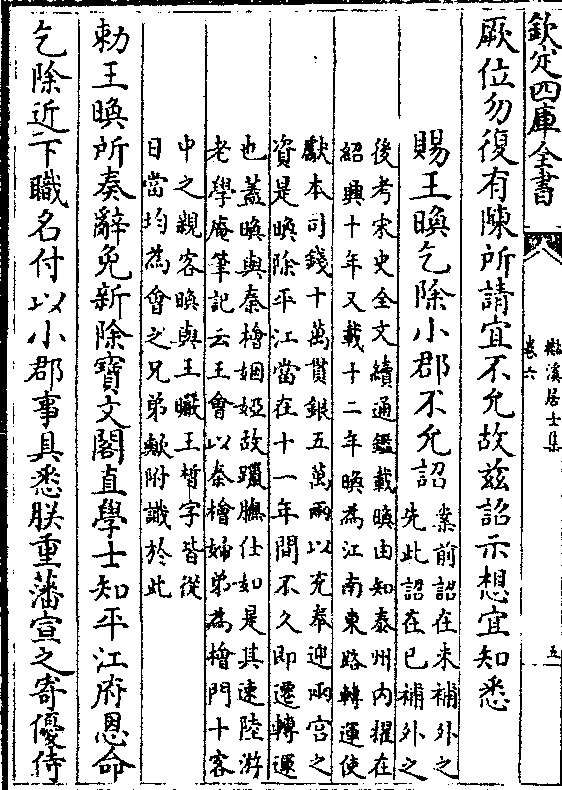 欽定四庫全書
檆溪居士集
卷六
五
厥位勿復有陳所請宜不允故兹詔示想宜知悉
賜王㬇乞除小郡不允詔
案前詔在未補外之
先此詔在已補外之
後考宋史全文續通鑑載㬇由知泰州内擢在
紹興十年又載十二年㬇為江南東路轉運使
獻本司錢十萬貫銀五萬兩以充奉迎兩宫之
資是㬇除平江當在十一年間不久即遷轉運
也蓋㬇與秦檜姻婭故躐膴仕如是其速陸游
老學庵筆記云王會以秦檜婦弟為檜門十客
中之親客㬇與王王晳字皆從
日當均為會之兄弟歟附識於此
勅王㬇所奏辭免新除寶文閣直學士知平江府恩命
乞除近下職名付以小郡事具悉朕重藩宣之寄優侍